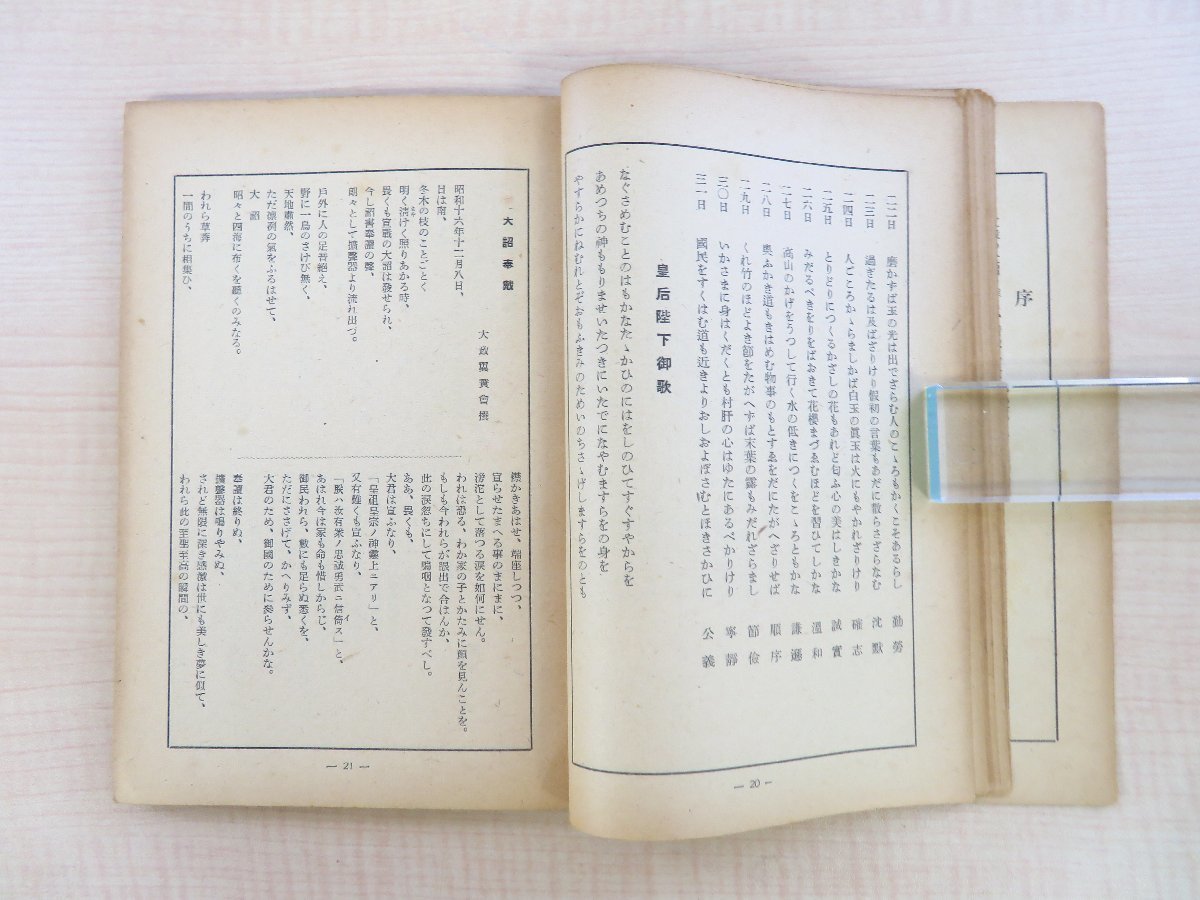 序
二二日 磨かずば玉の光は出でざらむ人のこゝろもかくこそあるらし 勤勞
二三日 過ぎたるは及ばざりけり假初の言葉もあだに散らさざらなむ 沈默
二四日 人ごころかゝらましかば白玉の眞玉は火にもやかれざりけり 確志
二五日 とりどりにつくるかざしの花もあれど匂ふ心の美はしきかな 誠實
二六日 みだるべきをりをばおきて花櫻まづゑむほどを習ひてしかな 溫和
二七日 高山のかげをうつして行く水の低きにつくをこゝろともかな 謙遜
二八日 奥ふかき道もきはめむ物事のもとすゑをだにたがへざりせば 順序
二九日 くれ竹のほどよき節をたがへずば末葉の露もみだれざらまし 節儉
三〇日 いかさまに身はくだくとも村肝の心はゆたにあるべかりけり 寧靜
三一日 國民をすくはむ道も近きよりおしおよぼさむとほきさかひに 公義
皇后陛下御歌
なぐさめむことのはもかなたゝかひのにはをしのひてすぐすやからを
あめつちの神ももりませいたつきにいたでになやむますらをの身を
やすらかにねむれとぞおもふきみのためいのちさゝげしますらをのとも
— 20 —
大詔奉戴
大政翼賛會撰
昭和十六年十二月八日、
日は南、
冬木の枝のことごとく
明く淸けく照りあかる時、
畏くも宣戰の大詔は發せられ、
今し詔書奉讀の聲、
朗々として擴聲器より流れ出づ。
戶外に人の足音絕え、
野に一鳥のさけび無く、
天地肅然、
ただ凛冽の氣をふるはせて、
大詔
昭々と四海に布くを聽くのみなる。
われら草莽
一間のうちに相集ひ、
襟かきあはせ、端座しつつ、
宣らせたまへる事のまにまに、
滂沱として落つる淚を如何にせん。
われは恐る、わか家の子とかたみに顏を見んことを。
もしも今われらが眼出で合はんか、
此の淚忽ちにして嗚咽となつて發すべし。
ああ、畏くも、
大君は宣ふなり、
「皇祖皇宗ノ神靈上ニアリ」と、
又有難くも宣ふなり、
「朕ハ汝有衆ノ忠誠勇武ニ信倚ス」と、
あはれ今は家も命も惜しからじ、
御民われら、數にも足らぬ悉くを、
ただにささげて、かへりみず、
大君のため、御國のために參らせんかな。
奉讀は終りぬ、
擴聲器は鳴りやみぬ、
されど無限に深き感激は世にも美しき夢に似て、
われら此の至聖至高の瞬間の、
— 21 —